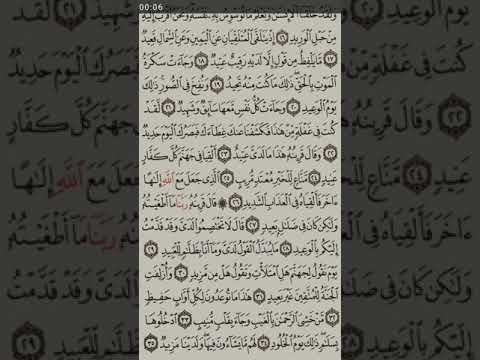 00:06
وَلَقَدْ خَلَقْنَا ٱلْإِنسَٰنَ وَنَعْلَمُ مَا تُوَسْوِسُ بِهِۦ نَفْسُهُۥ وَنَحْنُ أَقْرَبُ إِلَيْهِ
مِنْ حَبْلِ ٱلْوَرِيدِ ١٦ إِذْ يَتَلَقَّى ٱلْمُتَلَقِّيَانِ عَنِ ٱلْيَمِينِ وَعَنِ ٱلشِّمَالِ قَعِيدٌ
١٧ مَّا يَلْفِظُ مِن قَوْلٍ إِلَّا لَدَيْهِ رَقِيبٌ عَتِيدٌ ١٨ وَجَآءَتْ سَكْرَةُ
ٱلْمَوْتِ بِٱلْحَقِّ ذَٰلِكَ مَا كُنتَ مِنْهُ تَحِيدُ ١٩ وَنُفِخَ فِى ٱلصُّورِ ذَٰلِكَ
يَوْمُ ٱلْوَعِيدِ ٢٠ وَجَآءَتْ كُلُّ نَفْسٍ مَّعَهَا سَآئِقٌ وَشَهِيدٌ ٢١ لَّقَدْ
كُنتَ فِى غَفْلَةٍ مِّنْ هَٰذَا فَكَشَفْنَا عَنكَ غِطَآءَكَ فَبَصَرُكَ ٱلْيَوْمَ حَدِيدٌ
٢٢ وَقَالَ قَرِينُهُۥ هَٰذَا مَا لَدَىَّ عَتِيدٌ ٢٣ أَلْقِيَا فِى جَهَنَّمَ كُلَّ كَفَّارٍ
عَنِيدٍ ٢٤ مَّنَّاعٍ لِّلْخَيْرِ مُعْتَدٍ مُّرِيبٍ ٢٥ ٱلَّذِى جَعَلَ مَعَ ٱللَّهِ إِلَٰهًا
ءَاخَرَ فَأَلْقِيَاهُ فِى ٱلْعَذَابِ ٱلشَّدِيدِ ٢٦ قَالَ قَرِينُهُۥ رَبَّنَا مَآ أَطْغَيْتُهُۥ
وَلَٰكِن كَانَ فِى ضَلَٰلٍۭ بَعِيدٍ ٢٧ قَالَ لَا تَخْتَصِمُوا۟ لَدَىَّ وَقَدْ قَدَّمْتُ
إِلَيْكُم بِٱلْوَعِيدِ ٢٨ مَا يُبَدَّلُ ٱلْقَوْلُ لَدَىَّ وَمَآ أَنَا۠ بِظَلَّٰمٍ لِّلْعَبِيدِ ٢٩
يَوْمَ نَقُولُ لِجَهَنَّمَ هَلِ ٱمْتَلَأْتِ وَتَقُولُ هَلْ مِن مَّزِيدٍ ٣٠ وَأُزْلِفَتِ
ٱلْجَنَّةُ لِلْمُتَّقِينَ غَيْرَ بَعِيدٍ ٣١ هَٰذَا مَا تُوعَدُونَ لِكُلِّ أَوَّابٍ حَفِيظٍ
٣٢ مَّنْ خَشِىَ ٱلرَّحْمَٰنَ بِٱلْغَيْبِ وَجَآءَ بِقَلْبٍ مُّنِيبٍ ٣٣ ٱدْخُلُوهَا
بِسَلَٰمٍ ذَٰلِكَ يَوْمُ ٱلْخُلُودِ ٣٤ لَهُم مَّا يَشَآءُونَ فِيهَا وَلَدَيْنَا مَزِيدٌ ٣٥